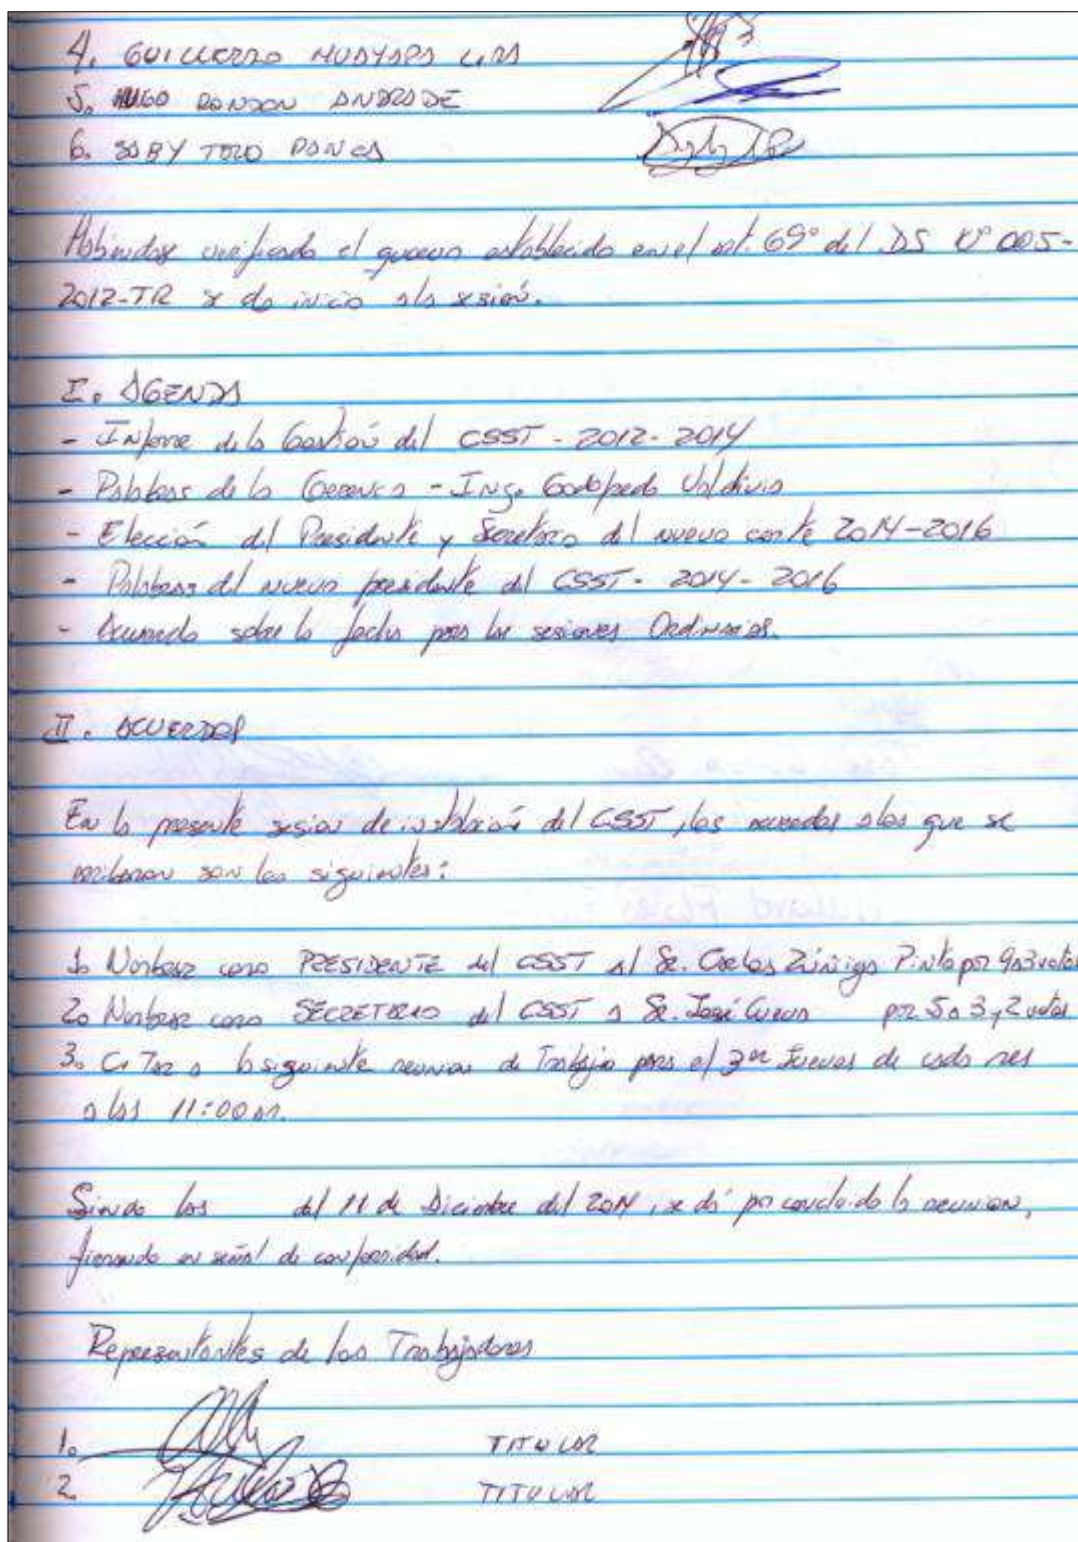 4. GUILLERMO HUAYAPA LIRA
5. HUGO RONDON ANDRADE
6. SABY TORO PANCA
Habiendose verificado el quorum establecido en el art. 69° del DS N° 005-
2012-TR se da inicio a la sesión.
I. AGENDA
- Informe de la Gestión del CSST - 2012 - 2014
- Palabras de la Gerencia - Ing. Godofredo Valdivia
- Elección del Presidente y Secretario del nuevo comite 2014-2016
- Palabras del nuevo presidente del CSST - 2014 - 2016
- Acuerdo sobre la fecha para las sesiones Ordinarias.
II. ACUERDOS
En la presente sesion de instalación del CSST, los acuerdos a los que se
arribaron son los siguientes:
1. Nombrar como PRESIDENTE del CSST al Sr. Carlos Zúñiga Pinto por 9 a 3 votos
2. Nombrar como SECRETARIO del CSST a Sr. José Cueva por 5 a 3 y 2 votos
3. Citar a la siguiente reunion de Trabajo para el 3er Jueves de cada mes
a las 11:00 am.
Siendo las del 11 de Diciembre del 2014, se dá por concluido la reunion,
firmando en señal de conformidad.
Representantes de los Trabajadores
1. TITULAR
2. TITULAR